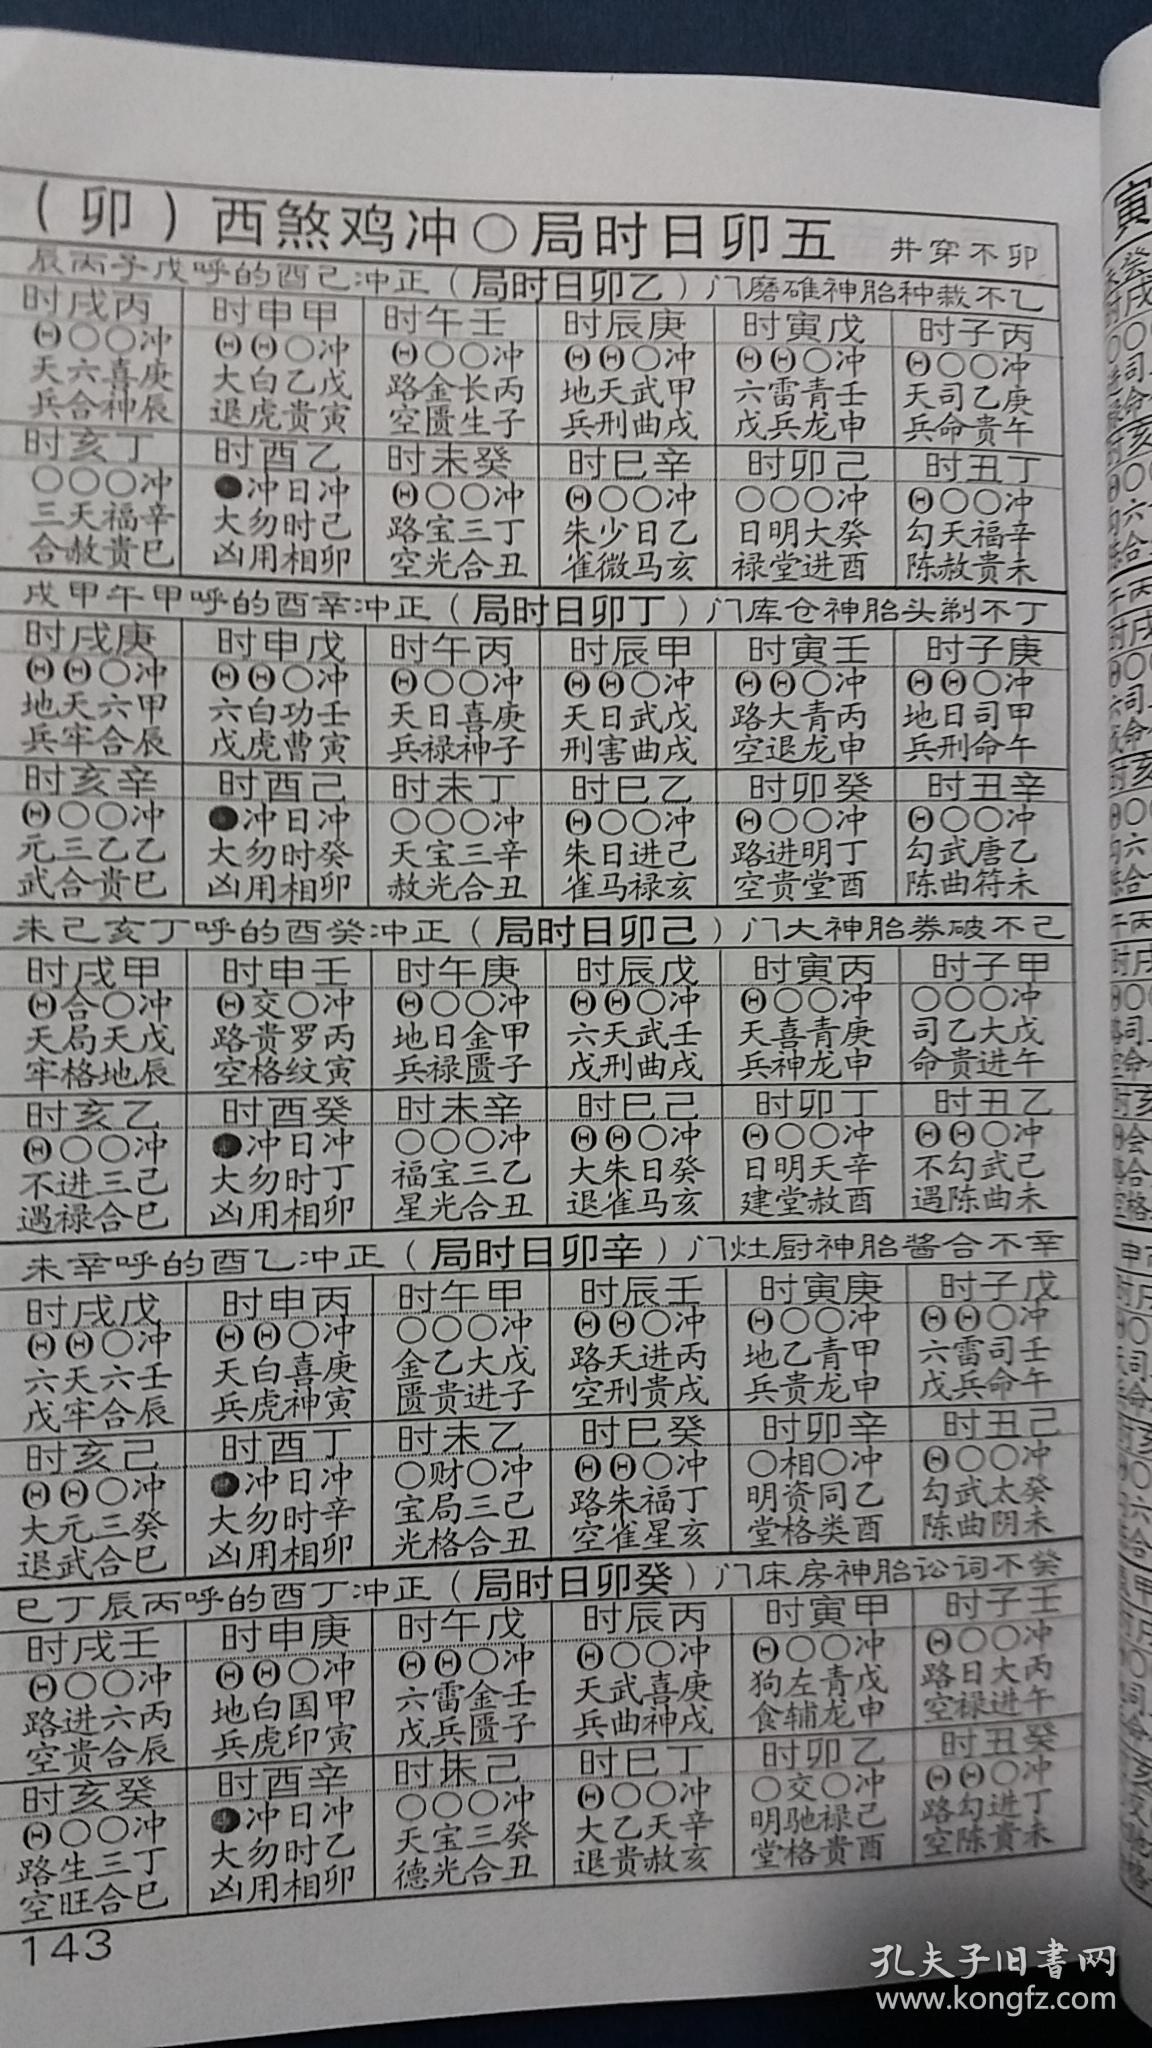 卯不穿井 五卯日时局○冲鸡煞西（卯）
乙不栽种胎神碓磨门（乙卯日时局）正冲己酉的呼戊子丙辰
丙子时 戊寅时 庚辰时 壬午时 甲申时 丙戌时
冲○○Θ 冲○ΘΘ 冲○ΘΘ 冲○○Θ 冲○ΘΘ 冲○○Θ
庚乙司天 壬青雷六 甲武天地 丙长金路 戊乙白大 庚喜六天
午贵命兵 申龙兵戊 戌曲刑兵 子生匮空 寅贵虎退 辰神合兵
丁丑时 己卯时 辛巳时 癸未时 乙酉时 丁亥时
冲○○Θ 冲○○○ 冲○○Θ 冲○○Θ 冲日冲● 冲○○○
辛福天勾 癸大明日 乙日少朱 丁三宝路 己时勿大 辛福天三
未贵赦陈 酉进堂禄 亥马微雀 丑合光空 卯相用凶 巳贵赦合
丁不剃头胎神仓库门（丁卯日时局）正冲辛酉的呼甲午甲戌
庚子时 壬寅时 甲辰时 丙午时 戊申时 庚戌时
冲○ΘΘ 冲○ΘΘ 冲○ΘΘ 冲○○Θ 冲○ΘΘ 冲○ΘΘ
甲司日地 丙青大路 戊武日天 庚喜日天 壬功白六 甲六天地
午命刑兵 申龙退空 戌曲害刑 子神禄兵 寅曹虎戊 辰合牢兵
辛丑时 癸卯时 乙巳时 丁未时 己酉时 辛亥时
冲○○Θ 冲○○Θ 冲○○Θ 冲○○○ 冲日冲● 冲○○Θ
乙唐武勾 丁明进路 己进日朱 辛三宝天 癸时勿大 乙乙三元
未符曲陈 酉堂贵空 亥禄马雀 丑合光赦 卯相用凶 巳贵合武
己不破券胎神大门（己卯日时局）正冲癸酉的呼丁亥己未
甲子时 丙寅时 戊辰时 庚午时 壬申时 甲戌时
冲○○○ 冲○○Θ 冲○ΘΘ 冲○○Θ 冲○交Θ 冲○合Θ
戊大乙司 庚青喜天 壬武天六 甲金日地 丙罗贵路 戊天局天
午进贵命 申龙神兵 戌曲刑戊 子匮禄兵 寅纹格空 辰地格牢
乙丑时 丁卯时 己巳时 辛未时 癸酉时 乙亥时
冲○ΘΘ 冲○○Θ 冲○ΘΘ 冲○○○ 冲日冲● 冲○○Θ
己武勾不 辛天明日 癸日朱大 乙三宝福 丁时勿大 己三进不
未曲陈遇 酉赦堂建 亥马雀退 丑合光星 卯相用凶 巳合禄遇
辛不合酱胎神厨灶门（辛卯日时局）正冲乙酉的呼辛未
戊子时 庚寅时 壬辰时 甲午时 丙申时 戊戌时
冲○ΘΘ 冲○○Θ 冲○ΘΘ 冲○○○ 冲○ΘΘ 冲○ΘΘ
壬司雷六 甲青乙地 丙进天路 戊大乙金 庚喜白天 壬六天六
午命兵戊 申龙贵兵 戌贵刑空 子进贵匮 寅神虎兵 辰合牢戊
己丑时 辛卯时 癸巳时 乙未时 丁酉时 己亥时
冲○○Θ 冲○相○ 冲○ΘΘ 冲○财○ 冲日冲● 冲○ΘΘ
癸太武勾 乙同资明 丁福朱路 己三局宝 辛时勿大 癸三元大
未阴曲陈 酉类格堂 亥星雀空 丑合格光 卯相用凶 巳合武退
癸不词讼胎神房床门（癸卯日时局）正冲丁酉的呼丙辰丁巳
壬子时 甲寅时 丙辰时 戊午时 庚申时 壬戌时
冲○○Θ 冲○○Θ 冲○○Θ 冲○ΘΘ 冲○ΘΘ 冲○○Θ
丙大日路 戊青左狗 庚喜武天 壬金雷六 甲国白地 丙六进路
午进禄空 申龙辅食 戌神曲兵 子匮兵戊 寅印虎兵 辰合贵空
癸丑时 乙卯时 丁巳时 己未时 辛酉时 癸亥时
冲○ΘΘ 冲○交○ 冲○○Θ 冲○○○ 冲日冲● 冲○○Θ
丁进勾路 己禄驰明 辛天乙大 癸三宝天 乙时勿大 丁三生路
未贵陈空 酉贵格堂 亥赦贵退 丑合光德 卯相用凶 巳合旺空
143
孔夫子旧书网
www.kongfz.com